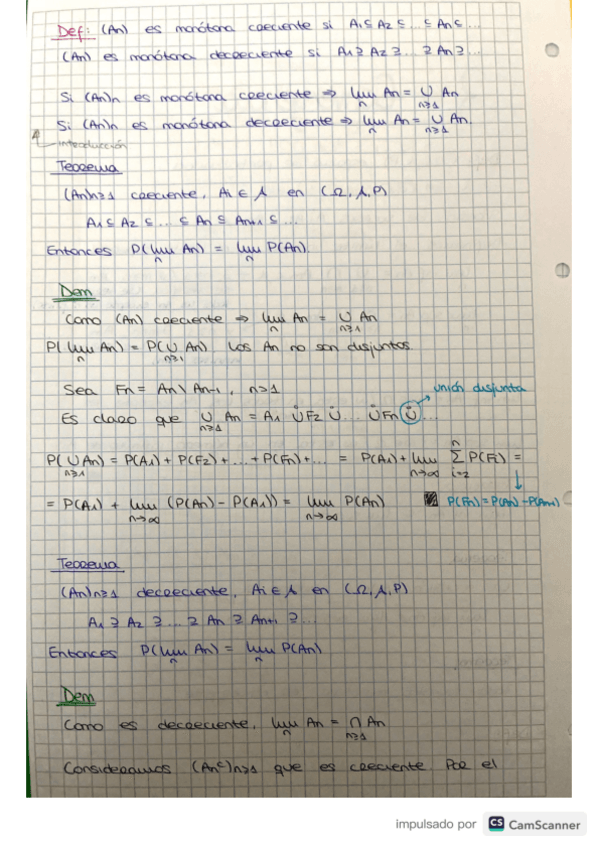 Def: (An) es monótona creciente si A1 ⊆ A2 ⊆ ... ⊆ An ⊆ ...
(An) es monótona decreciente si A1 ⊇ A2 ⊇ ... ⊇ An ⊇ ...
Si (An)n es monótona creciente ⇒ lim n An = ∪ n≥1 An
Si (An)n es monótona decreciente ⇒ lim n An = ∪ n≥1 An.
introducción
Teorema
(An)n≥1 creciente, Ai ∈ A en (Ω, A, P)
A1 ⊆ A2 ⊆ ... ⊆ An ⊆ An+1 ⊆ ...
Entonces P(lim n An) = lim n P(An).
Dem
Como (An) creciente ⇒ lim n An = ∪ n≥1 An
P(lim n An) = P(∪ n≥1 An) Los An no son disjuntos.
Sea Fn = An \ An-1, n>1
unión disjunta
Es claro que ∪ n≥1 An = A1 ∪̇ F2 ∪̇ ... ∪̇ Fn ∪̇ ...
P(∪ n≥1 An) = P(A1) + P(F2) + ... + P(Fn) + ... = P(A1) + lim n→∞ Σ i=2 n P(Fi) =
= P(A1) + lim n→∞ (P(An) - P(A1)) = lim n→∞ P(An)
P(Fn) = P(An) - P(An-1)
Teorema
(An)n≥1 decreciente, Ai ∈ A en (Ω, A, P)
A1 ⊇ A2 ⊇ ... ⊇ An ⊇ An+1 ⊇ ...
Entonces P(lim n An) = lim n P(An)
Dem
Como es decreciente, lim n An = ∩ n≥1 An
Consideramos (Anᶜ)n≥1 que es creciente. Por el
impulsado por CS CamScanner